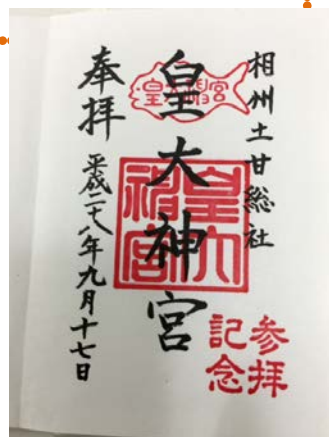 相州土甘総社
皇大神宮
皇大神宮
皇大神宮
参拝記念
奉拝
平成二十八年九月十七日